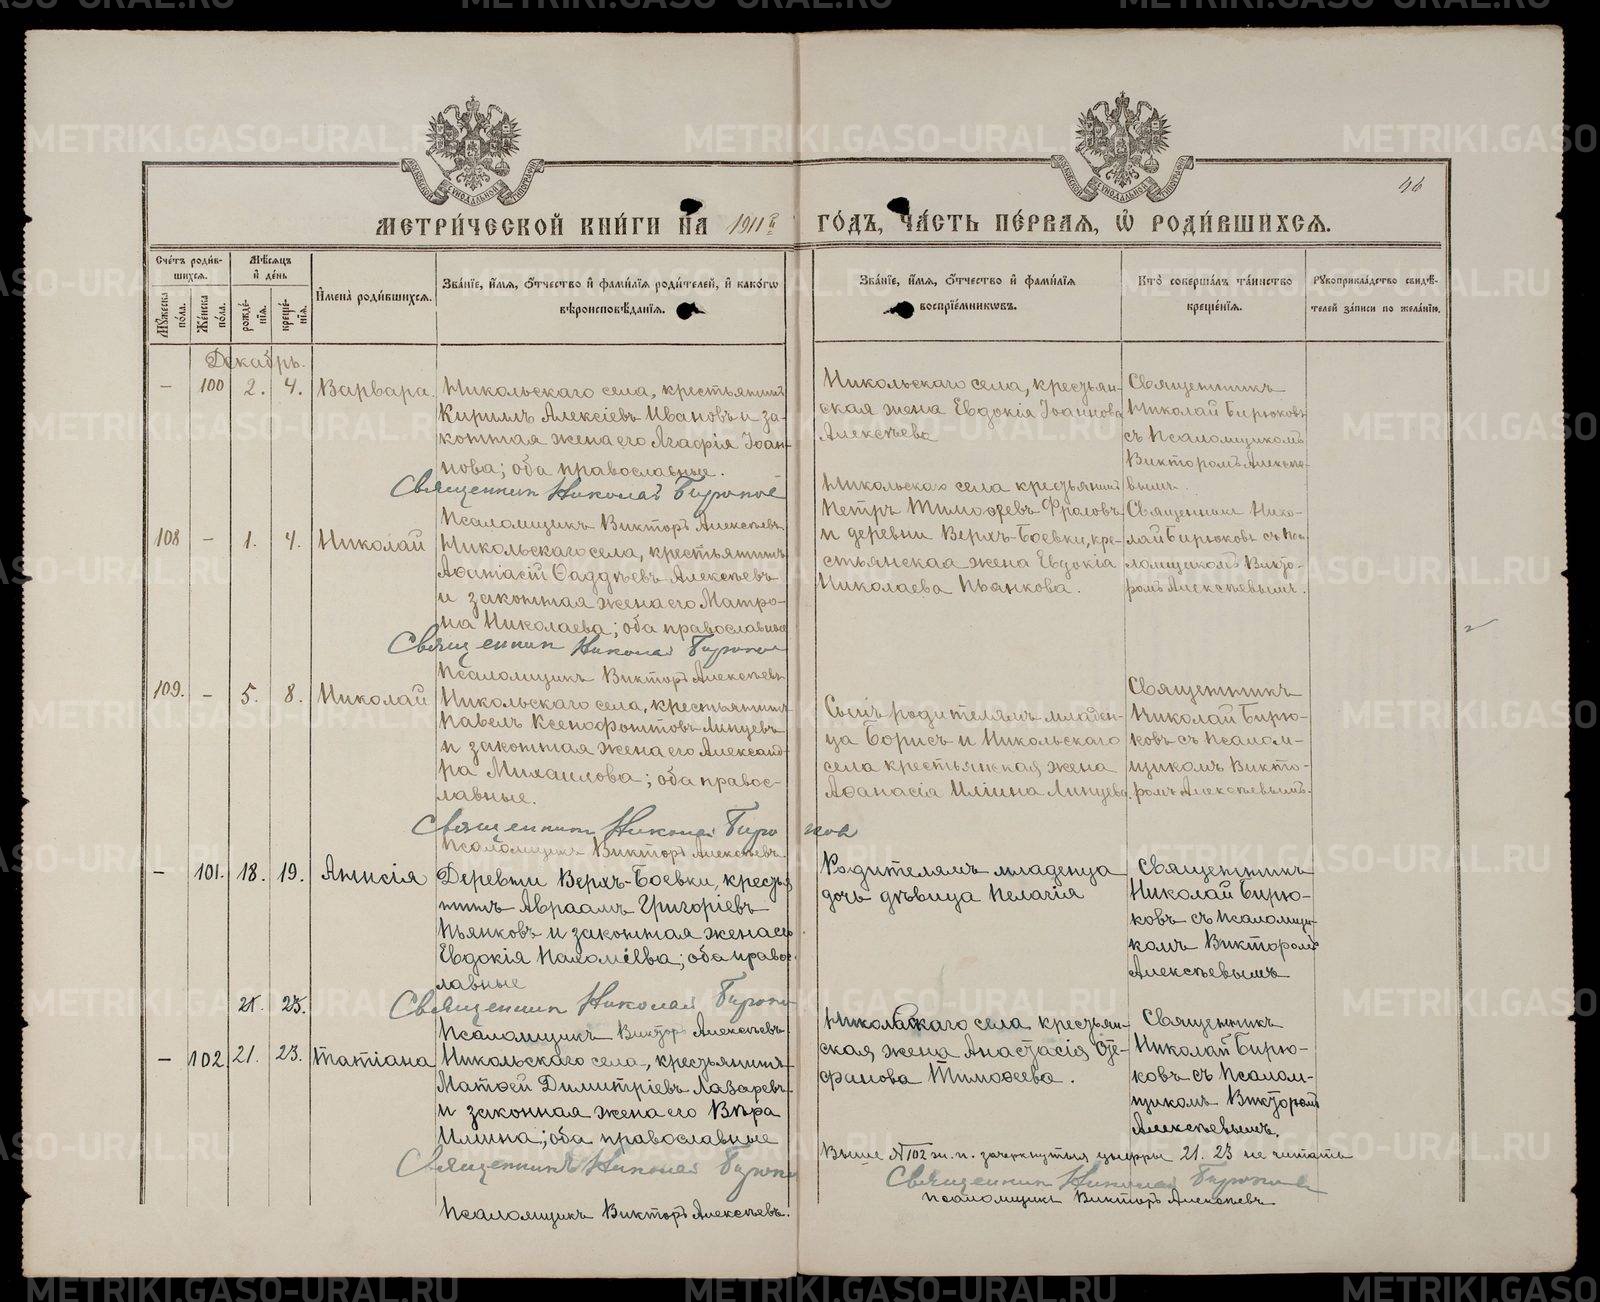 46
МЕТРИЧЕСКОЙ КНИГИ НА 1911й ГОДЪ, ЧАСТЬ ПЕРВАЯ, Ѡ РОДИВШИХСЯ.
Счетъ родив-
шихся.
Мужеска пола.
Женска пола.
Мѣсяцъ
и день
рожде-
нія.
креще-
нія.
Имена родившихся.
Званіе, имя, отчество и фамилія родителей, и какогѡ
вѣроисповѣданія.
Званіе, имя, отчество и фамилія
воспріемникѡвъ.
Кто совершалъ таинство
крещенія.
Рукоприкладство свидѣ-
телей записи по желанію.
Декабрь.
– 100 2. 4. Варвара.
Никольскаго села, крестьянинъ
Кириллъ Алексіевъ Ивановъ и за-
конная жена его Агафія Іоан-
нова; оба православные.
Священник Николай Бирюков
Псаломщикъ Викторъ Алексѣевъ
Никольскаго села, крестьян-
ская жена Евдокія Іоаннова
Алексѣева
Священникъ
Николай Бирюковъ
съ Псаломщикомъ
Викторомъ Алексѣе-
вымъ.
108 – 1. 4. Николай
Никольскаго села, крестьянинъ
Аѳанасій Ѳаддѣевъ Алексѣевъ
и законная жена его Матро-
на Николаева; оба православные
Священник Николай Бирюков
Псаломщикъ Викторъ Алексѣевъ
Никольскаго села крестьянинъ
Петръ Тимоѳеевъ Фроловъ
и деревни Верхъ-Боевки, кре-
стьянская жена Евдокія
Николаева Пьянкова.
Священникъ Нико-
лай Бирюковъ съ Пса-
ломщикомъ Викто-
ромъ Алексѣевымъ.
109. – 5. 8. Николай
Никольскаго села, крестьянинъ
Павелъ Ксенофонтовъ Линцевъ
и законная жена его Александ-
ра Михаилова; оба правос-
лавные.
Священник Николай Бирюков
Псаломщикъ Викторъ Алексѣевъ.
Сынъ родителямъ младен-
ца Борисъ и Никольскаго
села крестьянская жена
Аѳанасія Иліина Линцева.
Священникъ
Николай Бирю-
ковъ съ Псалом-
щикомъ Викто-
ромъ Алексѣевымъ.
– 101. 18. 19. Анисія
Деревни Верхъ-Боевки, крестья
нинъ Авраамъ Григоріевъ
Пьянковъ и законная жена его
Евдокія Пахоміева; оба правос-
лавные
Священник Николай Бирюков
Псаломщикъ Викторъ Алексѣевъ
Родителямъ младенца
дочь дѣвица Пелагія
Священникъ
Николай Бирю-
ковъ съ Псаломщи-
комъ Викторомъ
Алексѣевымъ
21. 23.
– 102. 21. 23. Татіана
Никольскаго села, крестьянинъ
Матѳей Димитріевъ Лазаревъ
и законная жена его Вѣра
Илиина; оба православные
Священникъ Николай Бирюков
Псаломщикъ Викторъ Алексѣевъ.
Никольскаго села крестьян-
ская жена Анастасія Сте-
фанова Тимоѳеева.
Священникъ
Николай Бирю-
ковъ съ Псалом-
щикомъ Викторомъ
Алексѣевымъ.
Выше №102 ж. п. зачеркнутыя цыфры 21. 23 не читать
Священник Николай Бирюков
Псаломщикъ Викторъ Алексѣевъ
METRIKI.GASO-URAL.RU